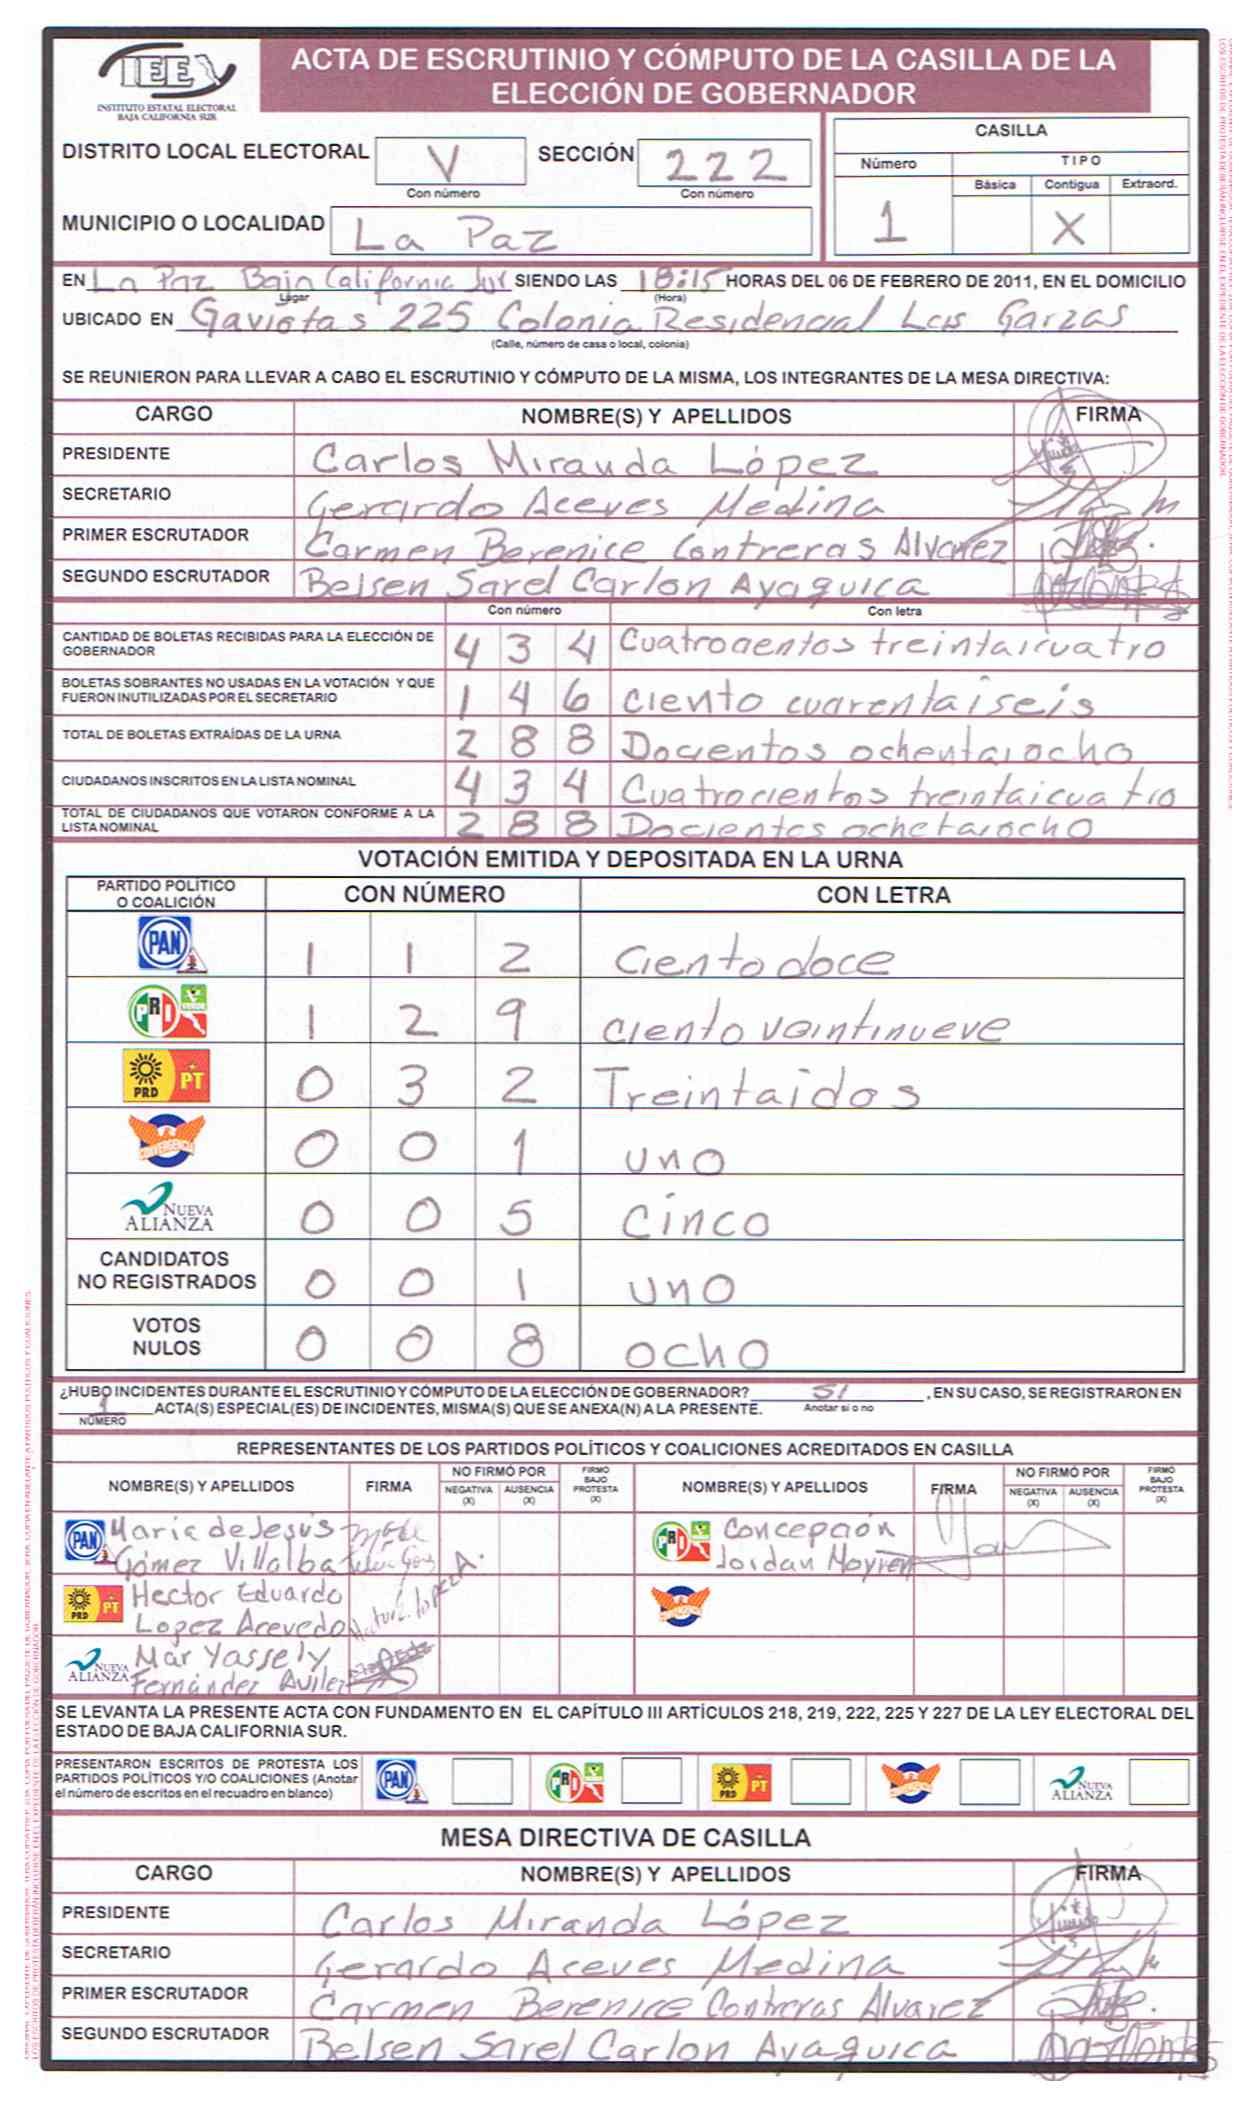 IEE
INSTITUTO ESTATAL ELECTORAL
BAJA CALIFORNIA SUR
ACTA DE ESCRUTINIO Y CÓMPUTO DE LA CASILLA DE LA
ELECCIÓN DE GOBERNADOR
DISTRITO LOCAL ELECTORAL V SECCIÓN 222
Con número Con número
MUNICIPIO O LOCALIDAD La Paz
CASILLA
Número TIPO
Básica Contigua Extraord.
1 X
EN La Paz Baja California Sur SIENDO LAS 18:15 HORAS DEL 06 DE FEBRERO DE 2011, EN EL DOMICILIO
Lugar (Hora)
UBICADO EN Gaviotas 225 Colonia Residencial Las Garzas
(Calle, número de casa o local, colonia)
SE REUNIERON PARA LLEVAR A CABO EL ESCRUTINIO Y CÓMPUTO DE LA MISMA, LOS INTEGRANTES DE LA MESA DIRECTIVA:
CARGO NOMBRE(S) Y APELLIDOS FIRMA
PRESIDENTE Carlos Miranda López
SECRETARIO Gerardo Aceves Medina
PRIMER ESCRUTADOR Carmen Berenice Contreras Alvarez
SEGUNDO ESCRUTADOR Belsen Sarel Carlon Ayaquica
Con número Con letra
CANTIDAD DE BOLETAS RECIBIDAS PARA LA ELECCIÓN DE
GOBERNADOR 4 3 4 Cuatrocientos treintaicuatro
BOLETAS SOBRANTES NO USADAS EN LA VOTACIÓN Y QUE
FUERON INUTILIZADAS POR EL SECRETARIO 1 4 6 ciento cuarentaiseis
TOTAL DE BOLETAS EXTRAÍDAS DE LA URNA 2 8 8 Docientos ochentaiocho
CIUDADANOS INSCRITOS EN LA LISTA NOMINAL 4 3 4 Cuatrocientos treintaicuatro
TOTAL DE CIUDADANOS QUE VOTARON CONFORME A LA
LISTA NOMINAL 2 8 8 Docientos ochetaiocho
VOTACIÓN EMITIDA Y DEPOSITADA EN LA URNA
PARTIDO POLÍTICO
O COALICIÓN CON NÚMERO CON LETRA
PAN 1 1 2 Ciento doce
PRI VERDE 1 2 9 ciento vaintinueve
PRD PT 0 3 2 Treintaidos
CONVERGENCIA 0 0 1 uno
NUEVA ALIANZA 0 0 5 Cinco
CANDIDATOS
NO REGISTRADOS 0 0 1 uno
VOTOS
NULOS 0 0 8 ocho
¿HUBO INCIDENTES DURANTE EL ESCRUTINIO Y CÓMPUTO DE LA ELECCIÓN DE GOBERNADOR? SI , EN SU CASO, SE REGISTRARON EN
1 ACTA(S) ESPECIAL(ES) DE INCIDENTES, MISMA(S) QUE SE ANEXA(N) A LA PRESENTE. Anotar si o no
NÚMERO
REPRESENTANTES DE LOS PARTIDOS POLÍTICOS Y COALICIONES ACREDITADOS EN CASILLA
NOMBRE(S) Y APELLIDOS FIRMA NO FIRMÓ POR FIRMÓ BAJO PROTESTA (X) NOMBRE(S) Y APELLIDOS FIRMA NO FIRMÓ POR FIRMÓ BAJO PROTESTA (X)
NEGATIVA (X) AUSENCIA (X) NEGATIVA (X) AUSENCIA (X)
PAN María de Jesús PRI Concepción
Gómez Villalba Joidan Moyren
PRD PT Hector Eduardo CONVERGENCIA
Lopez Acevedo
NUEVA ALIANZA Mar Yassely
Fernández Aviles
SE LEVANTA LA PRESENTE ACTA CON FUNDAMENTO EN EL CAPÍTULO III ARTÍCULOS 218, 219, 222, 225 Y 227 DE LA LEY ELECTORAL DEL
ESTADO DE BAJA CALIFORNIA SUR.
PRESENTARON ESCRITOS DE PROTESTA LOS
PARTIDOS POLÍTICOS Y/O COALICIONES (Anotar
el número de escritos en el recuadro en blanco) PAN PRI PRD PT CONVERGENCIA NUEVA ALIANZA
MESA DIRECTIVA DE CASILLA
CARGO NOMBRE(S) Y APELLIDOS FIRMA
PRESIDENTE Carlos Miranda López
SECRETARIO Gerardo Aceves Medina
PRIMER ESCRUTADOR Carmen Berenice Contreras Alvarez
SEGUNDO ESCRUTADOR Belsen Sarel Carlon Ayaquica